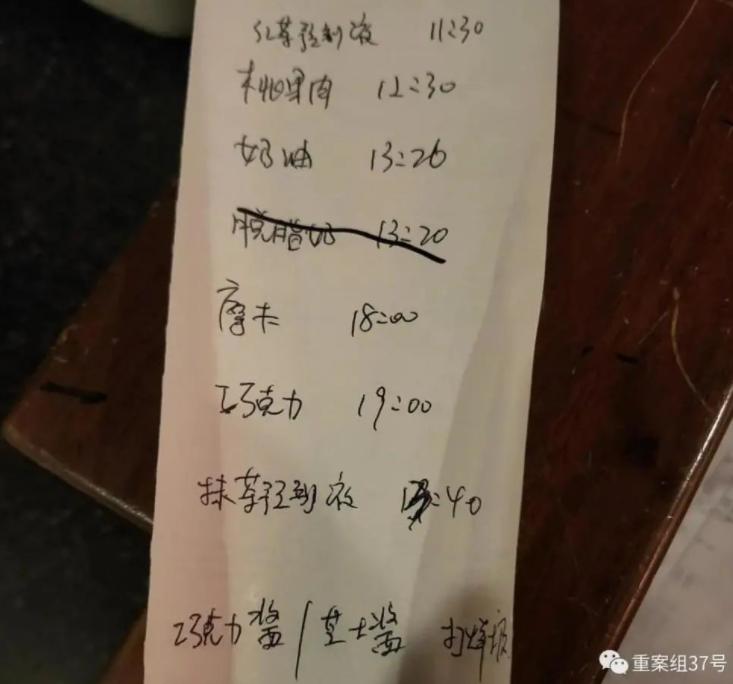 红茶预制液 11:30
水蜜果肉 12:30
奶油 13:20
脱脂奶 13:20
摩卡 18:00
巧克力 19:00
抹茶预制液 :40
巧克力酱/芝士酱 打烊
重案组37号